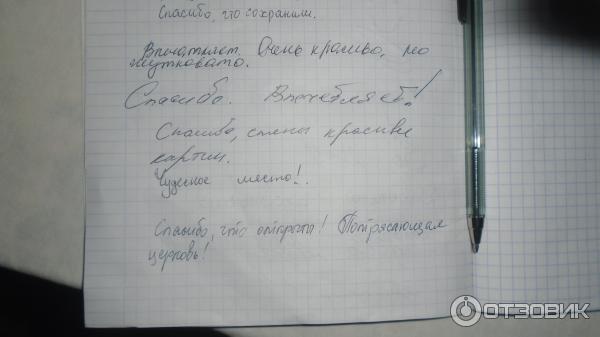 Спасибо, что сохранили.
Впечатляет. Очень красиво, но
жутковато.
Спасибо. Впечатляет!
Спасибо, стены красивее
картин.
Чудесное место!
Спасибо, что открыты! Потрясающая
церковь!
ОТЗОВИК